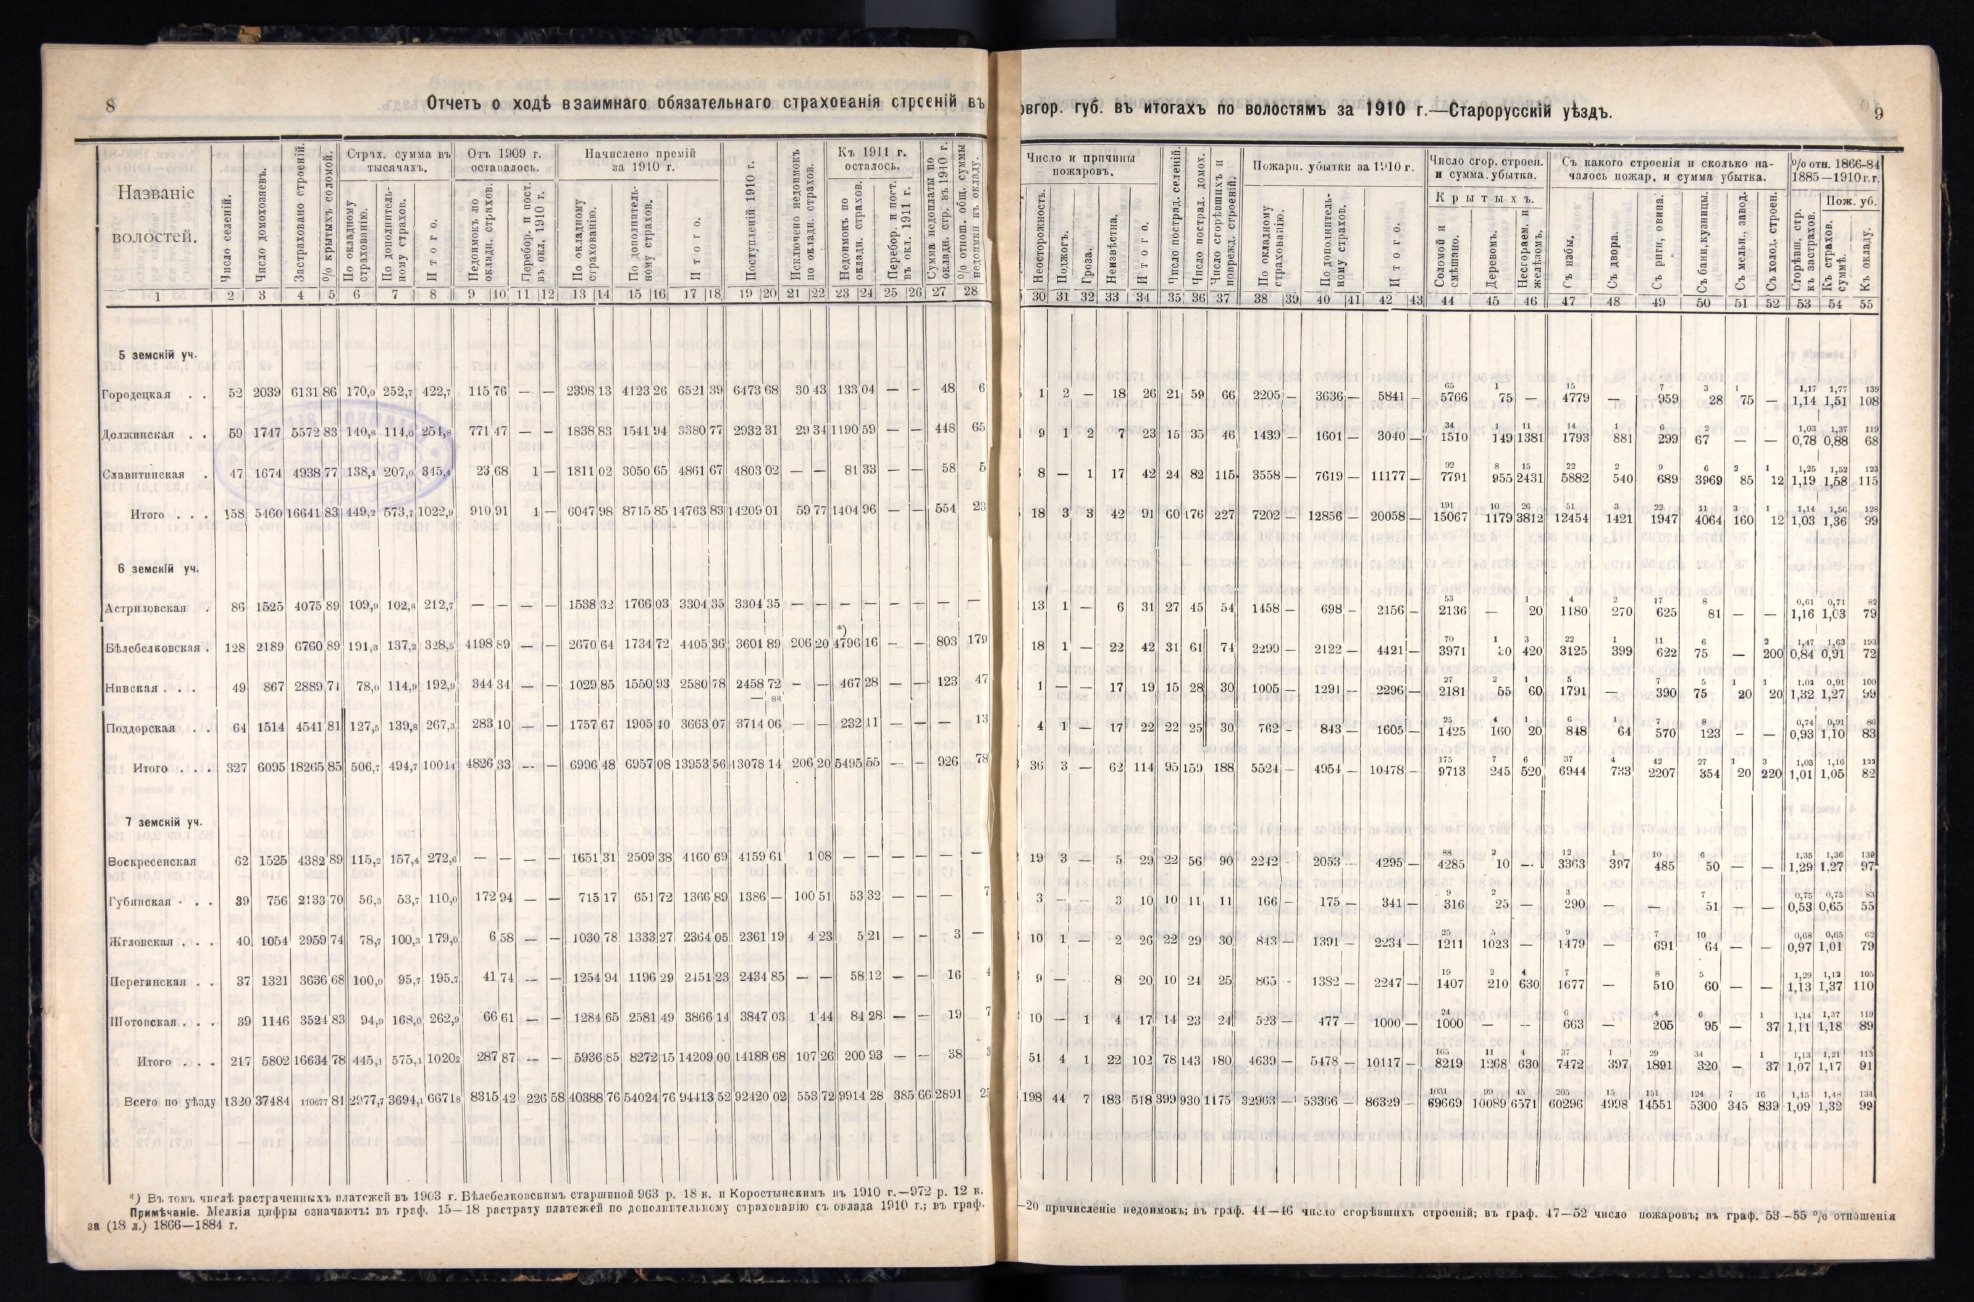 8
Отчетъ о ходѣ взаимнаго обязательнаго страхованія строеній въ
овгор. губ. въ итогахъ по волостямъ за 1910 г.—Старорусскій уѣздъ.
9
Названіе волостей.
Число селеній.
Число домохозяевъ.
Застраховано строеній.
% крытыхъ соломой.
Страх. сумма въ тысячахъ.
По окладному страхованію.
По дополнительному страхов.
Итого.
Отъ 1909 г. осталось.
Недоимокъ по окладн. страхов.
Перебор. и пост. въ окл. 1910 г.
Начислено премій за 1910 г.
По окладному страхованію.
По дополнительному страхов.
Итого.
Поступленій 1910 г.
Исключено недоимокъ по окладн. страхов.
Къ 1911 г. осталось.
Недоимокъ по окладн. страхов.
Перебор. и пост. въ окл. 1911 г.
Сумма недоплаты по окладн. стр. въ 1910 г.
% отнош. общ. суммы недоимки къ окладу.
Число и причины пожаровъ.
Неосторожность.
Поджогъ.
Гроза.
Неизвѣстна.
Итого.
Число постpад. селеній.
Число пострад. домох.
Число сгорѣвшихъ и поврежд. строеній.
Пожарн. убытки за 1910 г.
По окладному страхованію.
По дополнительному страхов.
Итого.
Число сгор. строен. и сумма убытка.
Крытыхъ.
Соломой и смѣшано.
Деревомъ.
Несгораем. и желѣзомъ.
Съ какого строенія и сколько началось пожар. и сумма убытка.
Съ избы.
Съ двора.
Съ риги, овина.
Съ бани, кузницы.
Съ мельн., завод.
Съ холод. строен.
% отн. 1866-84 1885—1910 г.г.
Сгорѣвш. стр. къ застрахов.
Пож. уб.
Къ страхов. суммѣ.
Къ окладу.
1 2 3 4 5 6 7 8 9 10 11 12 13 14 15 16 17 18 19 20 21 22 23 24 25 26 27 28
30 31 32 33 34 35 36 37 38 39 40 41 42 43 44 45 46 47 48 49 50 51 52 53 54 55
5 земскій уч.
Городецкая . . 52 2039 6131 86 170,0 252,7 422,7 115 76 — — 2398 13 4123 26 6521 39 6473 68 30 43 133 04 — — 48 6
1 2 — 18 26 21 59 66 2205 — 3636 — 5841 — 65 5766 1 75 — 15 4779 — 7 959 3 28 1 75 — 1,17 1,14 1,77 1,51 139 108
Должинская . . 59 1747 5572 83 140,8 114,0 254,8 771 47 — — 1838 83 1541 94 3380 77 2932 31 29 34 1190 59 — — 448 65
9 1 2 7 23 15 35 46 1439 — 1601 — 3040 — 34 1510 1 149 11 1381 14 1793 1 881 6 299 2 67 — — 1,03 0,78 1,37 0,88 119 68
Славитинская . 47 1674 4938 77 138,4 207,0 345,4 23 68 1 — 1811 02 3050 65 4861 67 4803 02 — — 81 33 — — 58 5
8 — 1 17 42 24 82 115 3558 — 7619 — 11177 — 92 7791 8 955 15 2431 22 5882 2 540 9 689 6 3969 2 85 1 12 1,25 1,19 1,52 1,58 123 115
Итого . . . 158 5460 16641 83 449,2 573,7 1022,9 910 91 1 — 6047 98 8715 85 14763 83 14209 01 59 77 1404 96 — — 554 23
18 3 3 42 91 60 176 227 7202 — 12856 — 20058 — 191 15067 10 1179 26 3812 51 12454 3 1421 22 1947 11 4064 3 160 1 12 1,14 1,03 1,56 1,36 128 99
6 земскій уч.
Астриловская . 86 1525 4075 89 109,9 102,8 212,7 — — — — 1538 32 1766 03 3304 35 3304 35 — — — — — — — —
13 1 — 6 31 27 45 54 1458 — 698 — 2156 — 53 2136 — 1 20 4 1180 2 270 17 625 8 81 — — 0,61 1,16 0,71 1,03 82 79
Бѣлебелковская . 128 2189 6760 89 191,3 137,2 328,5 4198 89 — — 2670 64 1734 72 4405 36 3601 89 206 20 *) 4796 16 — — 803 179
18 1 — 22 42 31 61 74 2299 — 2122 — 4421 — 70 3971 1 3 420 22 3125 1 399 11 622 6 75 — 2 200 1,47 0,84 1,63 0,91 193 72
Нивская . . . 49 867 2889 74 78,0 114,9 192,9 344 34 — — 1029 85 1550 93 2580 78 2458 72 — — 467 28 — — 123 47
— 88
1 — — 17 19 15 28 30 1005 — 1291 — 2296 — 27 2181 2 55 1 60 5 1791 — 7 390 5 75 1 20 1 20 1,02 1,32 0,91 1,27 100 99
Поддорская . . 64 1514 4541 81 127,5 139,8 267,3 283 10 — — 1757 67 1905 40 3663 07 3714 06 — — 232 11 — — — 13
4 1 — 17 22 22 25 30 762 — 843 — 1605 — 25 1425 4 160 1 20 6 848 1 64 7 570 8 123 — — 0,74 0,93 0,91 1,10 86 83
Итого . . . 327 6095 18265 85 506,7 494,7 1001,4 4826 33 — — 6996 48 6957 08 13953 56 13078 14 206 20 5495 55 — — 926 78
36 3 — 62 114 95 159 188 5524 — 4954 — 10478 — 175 9713 7 245 6 520 37 6944 4 733 42 2207 27 354 1 20 3 220 1,03 1,01 1,16 1,05 122 82
7 земскій уч.
Воскресенская 62 1525 4382 89 115,2 157,4 272,6 — — — — 1651 31 2509 38 4160 69 4159 61 1 08 — — — — — —
19 3 — 5 29 22 56 90 2242 - 2053 — 4295 — 88 4285 2 10 — 12 3363 1 397 10 485 6 50 — — 1,35 1,29 1,36 1,27 139 97
Губинская . . . 39 756 2133 70 56,3 53,7 110,0 172 94 — — 715 17 651 72 1366 89 1386 — 100 51 53 32 — — — 7
3 — — 3 10 10 11 11 166 — 175 — 341 — 9 316 2 25 — 3 290 — — 7 51 — — 0,75 0,53 0,75 0,65 83 55
Жгловская . . . 40 1054 2959 74 78,7 100,3 179,0 6 58 — — 1030 78 1333 27 2364 05 2361 19 4 23 5 21 — — 3 —
10 1 — 2 26 22 29 30 843 — 1391 — 2234 — 25 1211 5 1023 — 9 1479 — 7 691 10 64 — — 0,68 0,97 0,65 1,01 62 79
Перегинская . . 37 1321 3636 68 100,0 95,7 195,7 41 74 — — 1254 94 1196 29 2451 23 2434 85 — — 58 12 — — 16 4
9 — 8 20 10 24 25 865 - 1382 — 2247 — 19 1407 2 210 4 630 7 1677 — 8 510 5 60 — — 1,29 1,13 1,12 1,37 105 110
Шотовская . . . 39 1146 3524 83 94,9 168,0 262,9 66 61 — — 1284 65 2581 49 3866 14 3847 03 1 44 84 28 — — 19 7
10 — 1 4 17 14 23 24 523 — 477 — 1000 — 24 1000 — — 6 663 — 4 205 6 95 — 1 37 1,14 1,11 1,37 1,18 119 89
Итого . . . 217 5802 16634 78 445,1 575,1 1020,2 287 87 — — 5936 85 8272 15 14209 00 14188 68 107 26 200 93 — — 38 3
51 4 1 22 102 78 143 180 4639 — 5478 — 10117 — 165 8219 11 1268 4 630 37 7472 1 397 29 1891 34 320 — 1 37 1,13 1,07 1,21 1,17 113 91
Всего по уѣзду 1320 37484 110677 81 2977,7 3694,1 6671,8 8315 42 226 58 40388 76 54024 76 94413 52 92420 02 553 72 9914 28 385 66 2891 23
198 44 7 183 518 399 930 1175 32963 — 53366 — 86329 — 1031 69669 99 10089 45 6571 205 60296 15 4998 151 14551 124 5300 7 345 16 839 1,15 1,09 1,48 1,32 134 99
*) Въ томъ числѣ растраченныхъ платежей въ 1903 г. Бѣлебелковскимъ старшиной 963 р. 18 к. и Коростынскимъ въ 1910 г.—972 р. 12 к.
Примѣчаніе. Мелкія цифры означаютъ: въ граф. 15—18 растрату платежей по дополнительному страхованію съ оклада 1910 г.; въ граф.
—20 причисленіе недоимокъ; въ граф. 44—46 число сгорѣвшихъ строеній; въ граф. 47—52 число пожаровъ; въ граф. 53—55 % отношенія
за (18 л.) 1866—1884 г.